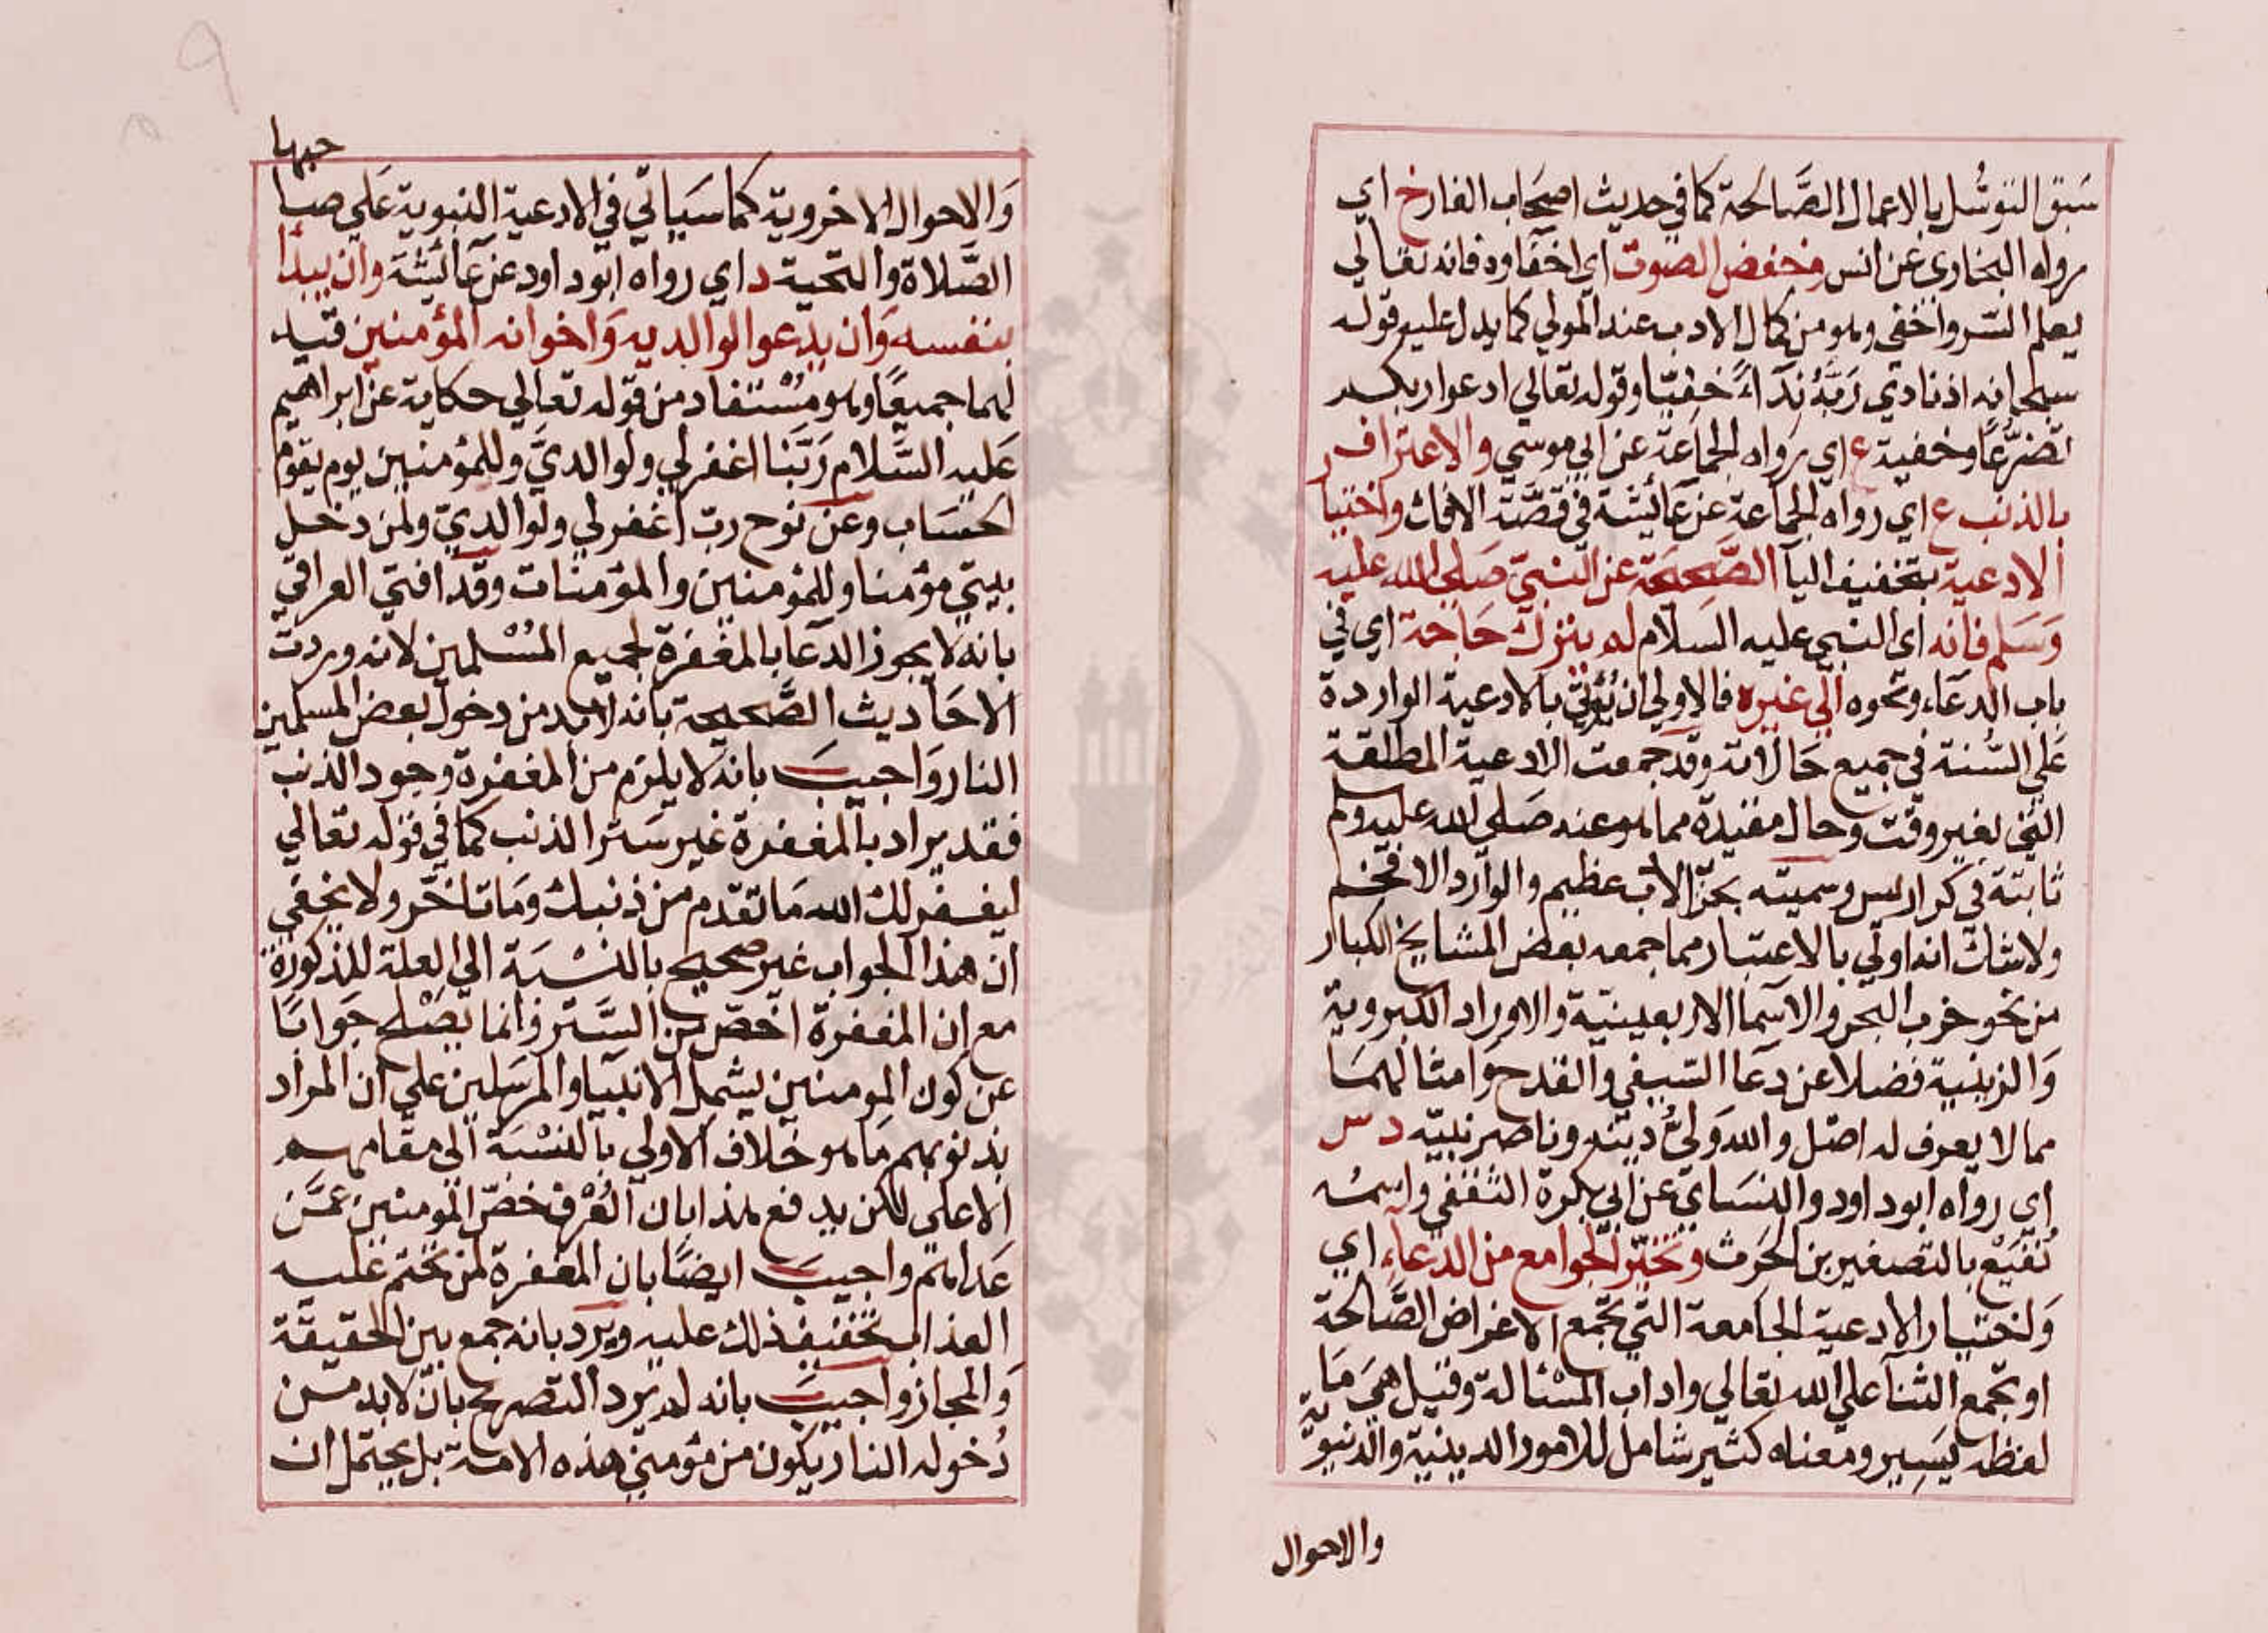 سَبَق التوسُّل بالاعمال الصَّالحة كما في حديث اصحَاب الغار خ اي
رواه البخاري عن انس وخفض الصوت اي اخفاوه فانه تعالي
يعلم السّر واخفي وهو من كمال الادب عند المولي كما يدل عليه قوله
سبحانه اذ نادي رَبَّهُ نِدَآءً خفيّا وقوله تعالي ادعوا ربكم
تضرّعًا وخفية ع اي رواه الجماعَة عن ابي موسي والاعتراف
بالذنب ع اي رواه الجماعة عن عَائيشة في قصَّة الافك واختيار
الادعية بتخفيف اليآ الصَّحيحَة عن النبيّ صَلي الله عليه
وَسَلم فانه اي النبي عليه السَلام لم يترك حَاجة اي في
باب الدعَاء ونحوه الي غيره فالاولي ان يُؤتي بالادعية الواردة
عَلي السُّنة في جميع حَالاته وقد جمعت الادعية المطلقة
التي لغير وقت وحال مقيدة مما هو عنه صَلي الله عليه وسلم
ثابتة في كراريس وسميته بحزب الاعظيم والوارد الافخم
ولا شك انه اولي بالاعتبار مما جمعه بعض المشايخ الكبار
من نحو حزب البحر والاسما الاربعينيّة والاوراد الكبروية
وَالزينية فضلا عن دعَا السّيفي والقدح وَامثالهمَا
مما لا يعرف له اصل والله وَليُّ دينه وناصر نبيّه د س
اي رواه ابو داود والنسَاي عن ابي بكرة الثقفي واسمُه
نُفَيْع بالتصغير بن الحَرث وتخيّر الجوامع من الدعاءِ اي
وَاختيار الادعية الجامعة التي تجمع الاغراض الصَّالحة
او تجمع الثنآ علي الله تعالي واداب المسْئالة وقيل هيَ مَا
لفظه يَسِير ومعناه كثير شامل للامور الدينية والدنيوية
والاحوال
حبها
وَالاحوال الاخروية كما سَياتي في الادعية النبوية عَلي صَا
الصَّلاة والتحية د اي رواه ابو داود عن عَائيشة وان يبدأ
بنفسه وَان يدعو الوالديه وَاخوانه المؤمنين قيل
لهما جميعًا وهو مُسْتفاد من قوله تعالي حكاية عن ابراهيم
عَليه السَّلام رَبَّنا اغفر لي ولوالديَّ وللمؤمنين يوم يقوم
الحسَاب وعن نوح رب اغفر لي ولوالديّ ولمن دخل
بيتي مؤمنا وللمؤمنين والمؤمنات وقد افتي العراقي
بانه لا يجوز الدعَا بالمغفرة لجميع المسْلمين لانه وردت
الاحَاديث الصَّحيحة بانه لابد من دخول بعض المسلمين
النار وَاجيبَ بانه لا يلزم من المغفرة وجود الذنب
فقد يراد بالمغفرة غير سَتر الذنب كما في قوله تعالي
ليغفر لك الله مَا تقدم من ذنبك وَمَا تاخّر ولا يخفي
ان هذا الجواب غير صحيح بالنسْبَة الي العلة المذكورة
مع ان المغفرة اخصّ من السَّتر وَانما يصْلح جَوابًا
عن كون المومنين يشمل الانبيا والمرسَلين علي ان المراد
بذنوبهم مَا هو خلاف الاولي بالنسْبَة الي مقامهم
الاعلي لكن يدفع هذا بان العُرْف خصّ المومنين عمَّن
عَداهم واجيبَ ايضًا بان المغفرة لمن تحتم عليه
العذاب تخفيف ذلك عليه ويَرد بانه جمع بين الحقيقة
وَالمجاز واجيبَ بانه لم يرد التصريح بانّ لابد من
دُخوله النار يكون من مؤمني هذه الامة بل يحتمل ان